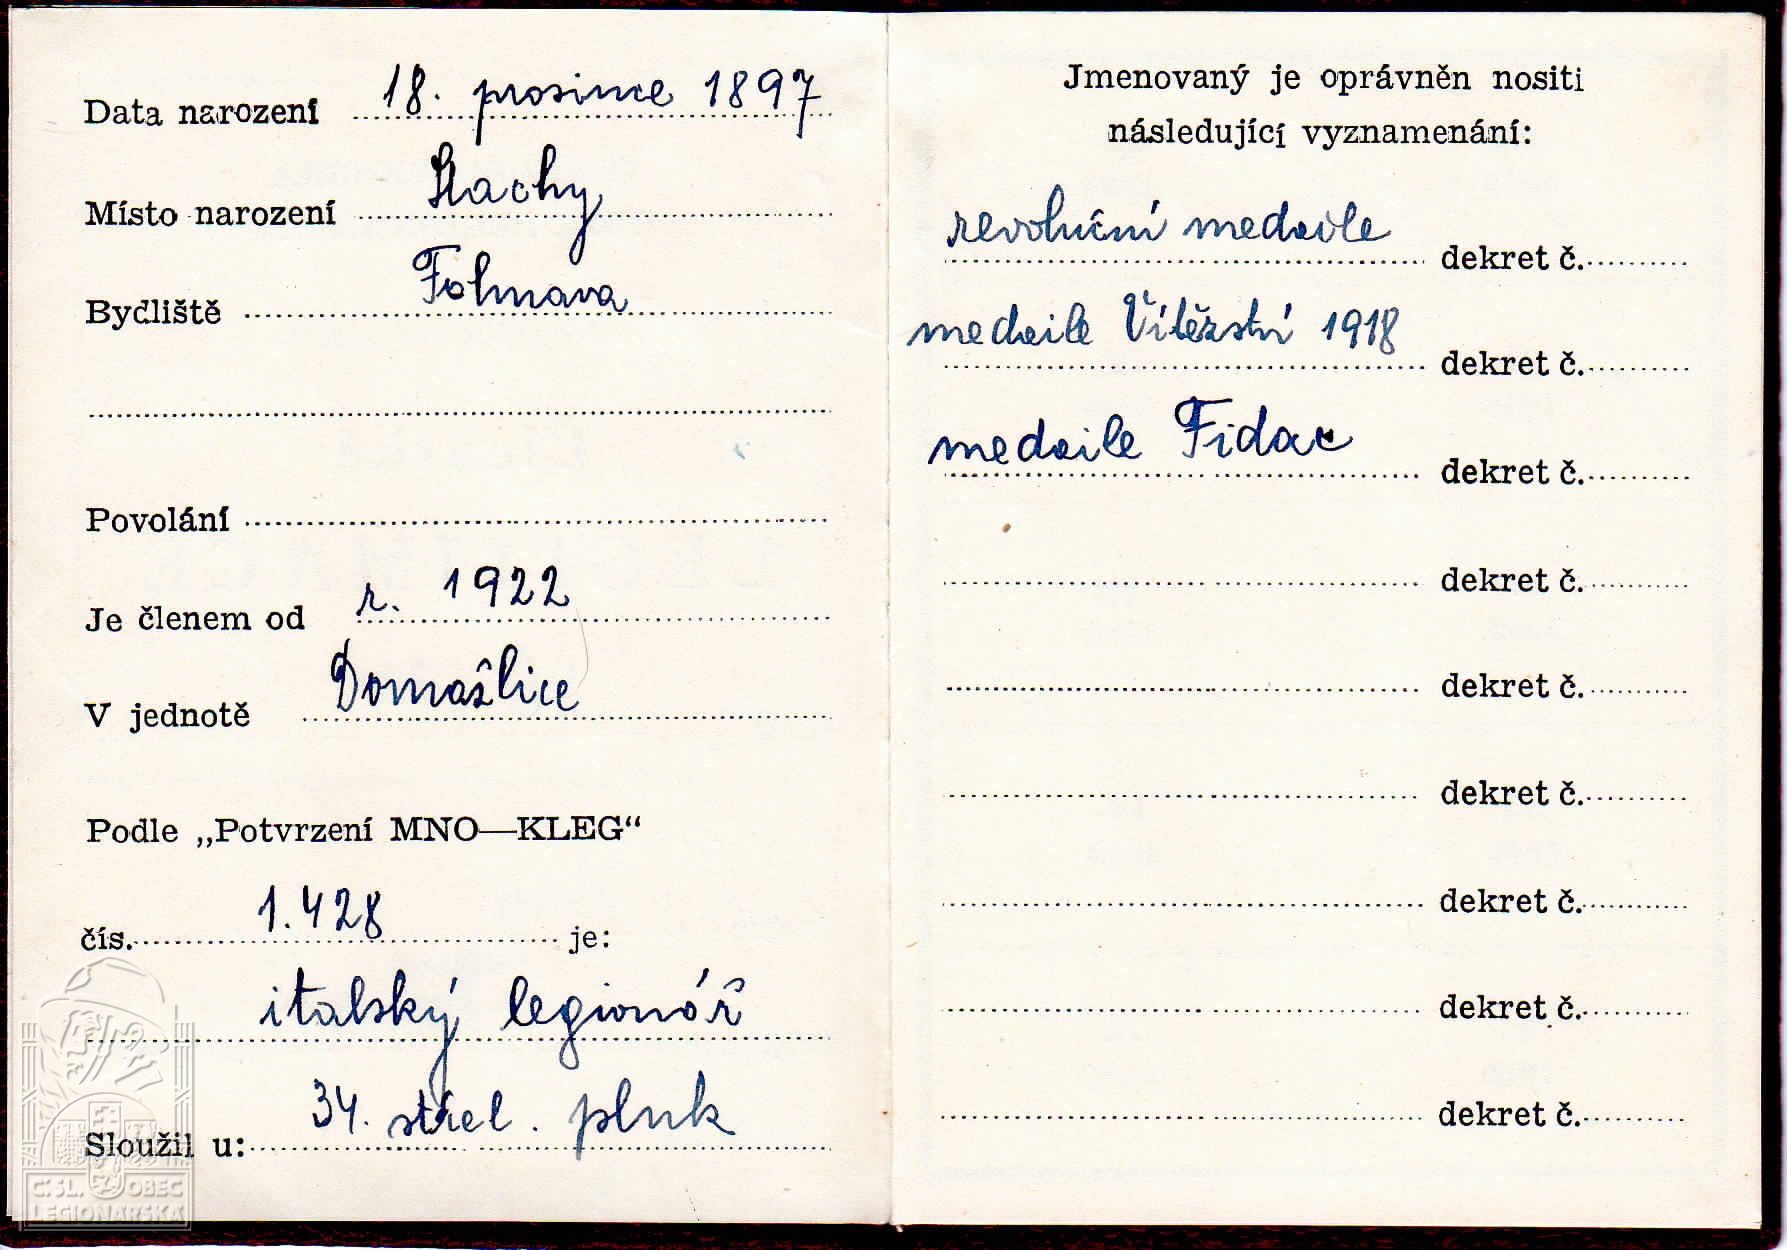 Data narození 18. prosince 1897
Místo narození Stachy
Bydliště Folmava
Povolání
Je členem od r. 1922
V jednotě Domažlice
Podle „Potvrzení MNO—KLEG“
čís. 1.428 je:
italský legionář
Sloužil u: 34. střel. pluk
Č.SL. OBEC
LEGIONÁŘSKÁ
Jmenovaný je oprávněn nositi
následující vyznamenání:
revoluční medaile dekret č.
medaile Vítězství 1918 dekret č.
medaile Fidac dekret č.
dekret č.
dekret č.
dekret č.
dekret č.
dekret č.
dekret č.